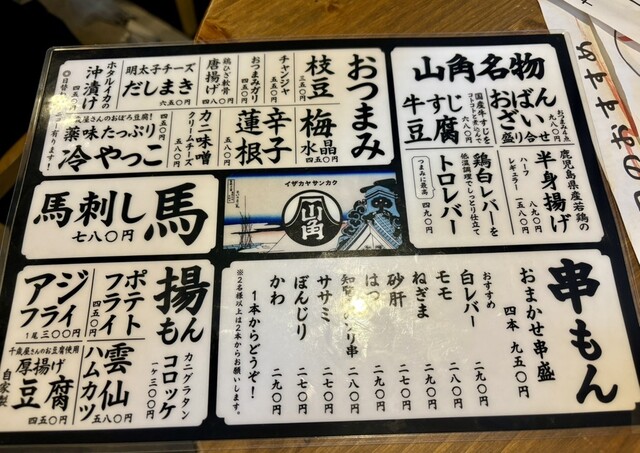 山角名物
おつまみ4点
ばいん
おざ
盛り合せ
九八〇円
国産牛すじを
コトコトと煮込んで
牛すじ
豆腐
六八〇円
鹿児島県産若鶏の
半身揚げ
ハーフ 八九〇円
レギュラー 一五八〇円
鶏白レバーを
低温調理でしっとり仕立て
トロレバー
つまみに最高 四九〇円
おつまみ
枝豆
三五〇円
チャンジャ
四五〇円
おつまみガリ
鶏ひざ軟骨
唐揚げ
四八〇円
明太子チーズ
だしまき
六五〇円
ホタルイカの
沖漬け
四五〇円
梅水晶
四五〇円
辛子
蓮根
五八〇円
カニ味噌
クリームチーズ
五八〇円
屋さんのおぼろ豆腐!
薬味たっぷり
冷やっこ
イザカヤサンカク
山角
馬
馬刺し
七八〇円
揚もん
カニグラタン
コロッケ
一ヶ三〇〇円
ポテト
フライ
四五〇円
アジ
フライ
1尾三〇〇円
雲仙
ハムカツ
五八〇円
千歳屋さんのお豆腐使用
厚揚げ
豆腐
自家製
四五〇円
串もん
おまかせ串盛
四本 九五〇円
おすすめ
白レバー 二九〇円
モモ 二七〇円
ねぎま 二七〇円
砂肝 二七〇円
はつ 二七〇円
ササミ 二七〇円
ぼんじり 二九〇円
かわ 二九〇円
1本からどうぞ!
※2名様以上は2本からお願いします。